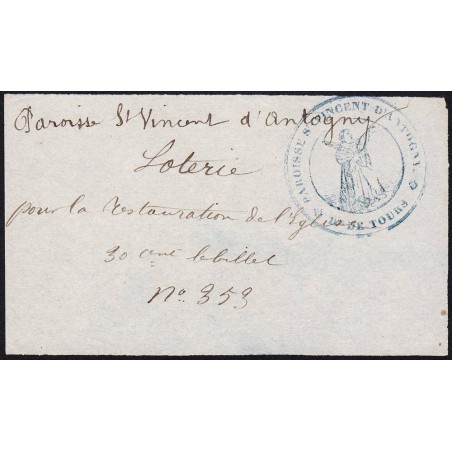 Paroisse St Vincent d'Antogny
Loterie
pour la restauration de l'Eglise
30 cent le billet
No. 353
PAROISSE ST VINCENT D'ANTOGNY.
DE TOURS